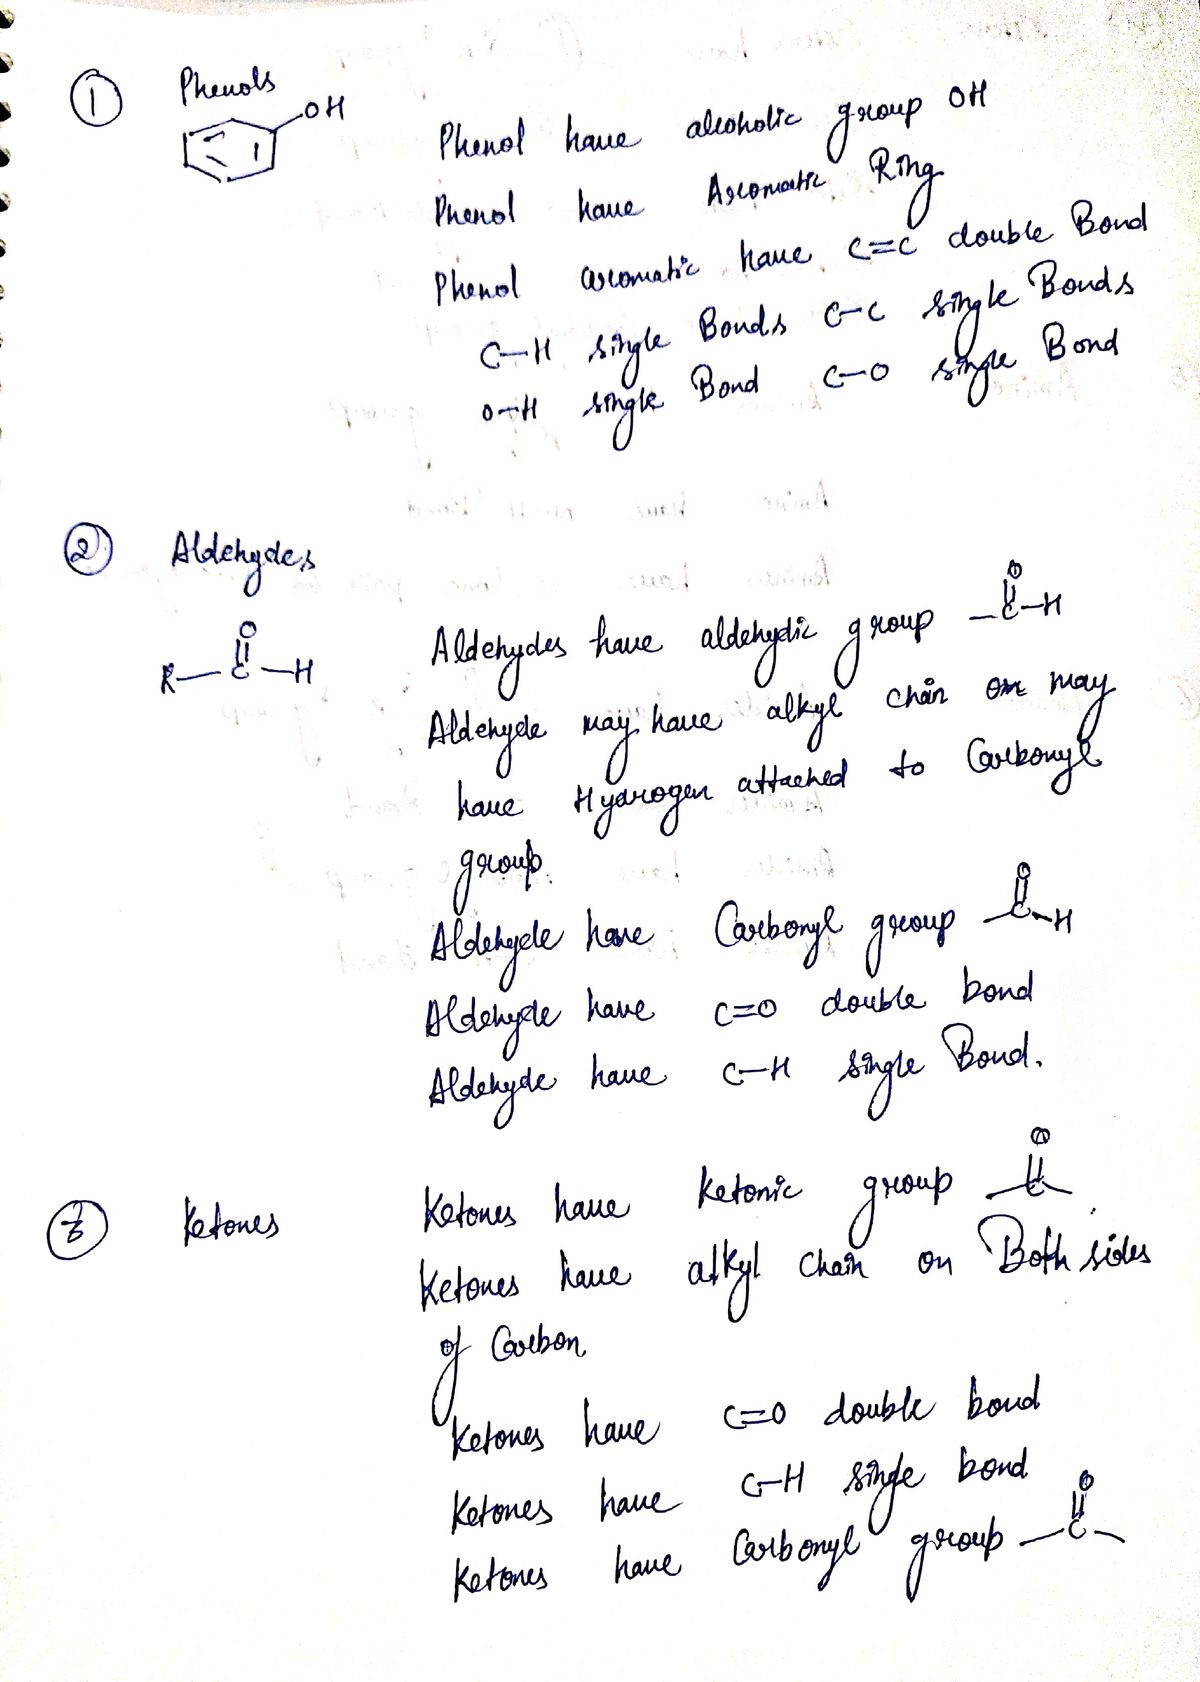 ① Phenols
OH
Phenol have alcoholic group OH
Phenol have Aromatic Ring
Phenol aromatic have C=C double Bond
C-H single Bonds C-C single Bonds
O-H single Bond C-O single Bond
② Aldehydes
O
R-C-H
Aldehydes have aldehydic group -C-H
O
Aldehyde may have alkyl chain or may
have Hydrogen attached to Carbonyl
group.
Aldehyde have Carbonyl group C-H
O
Aldehyde have C=O double bond
Aldehyde have C-H single Bond.
③ Ketones
Ketones have Ketonic group
O
Ketones have alkyl chain on Both sides
of Carbon
Ketones have C=O double bond
Ketones have C-H single bond
Ketones have Carbonyl group -C-
O